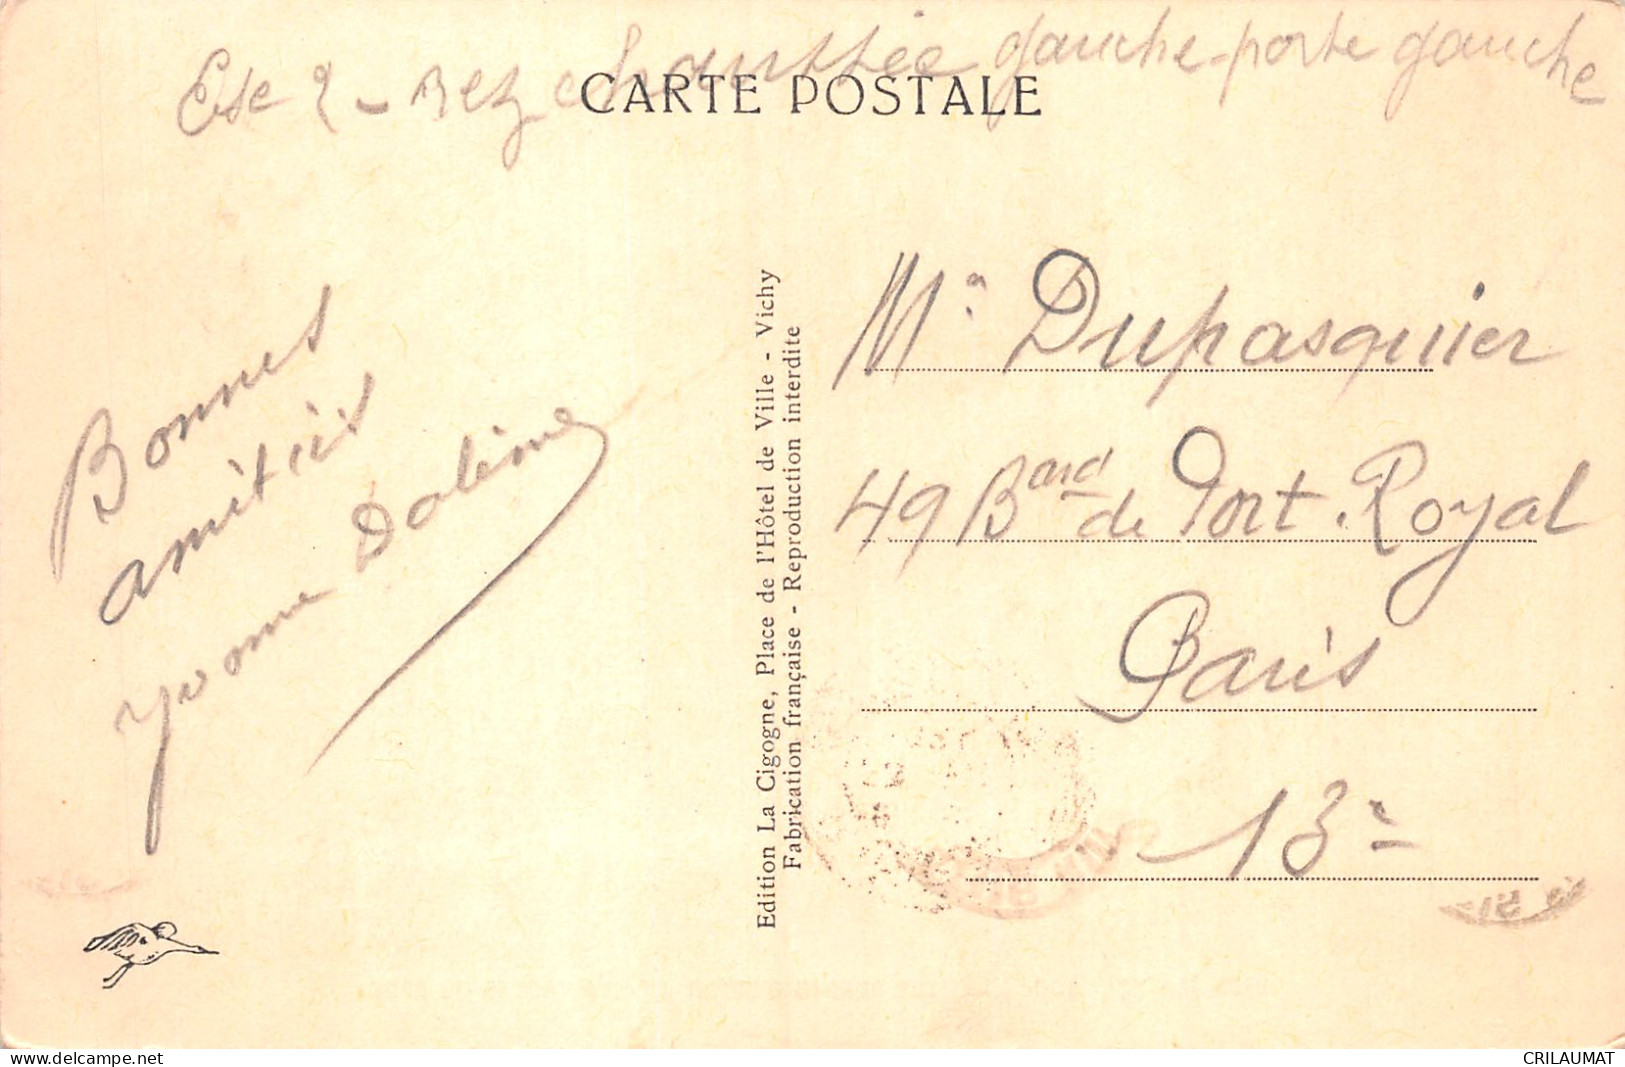 Esc 2 - rez chaussée gauche - porte gauche
CARTE POSTALE
Bonnes
amitiés
Yvonne
Edition La Cigogne, Place de l'Hôtel de Ville - Vichy
Fabrication française - Reproduction interdite
Mr Dupasquier
49 Bard de Port-Royal
Paris
13e
CRILAUMAT